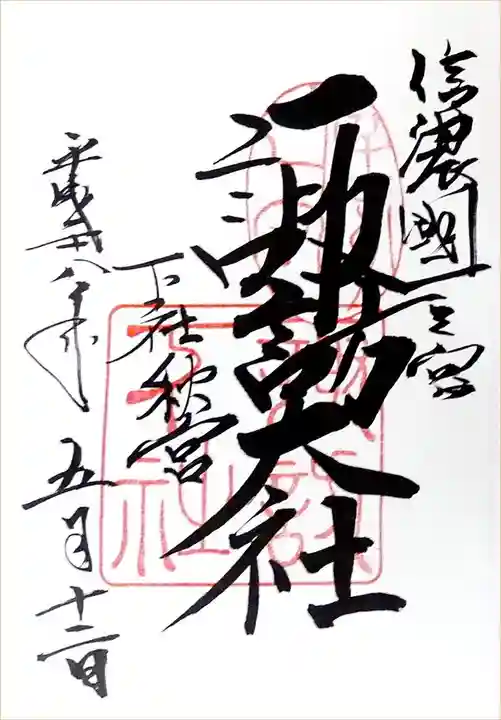 信濃國一之宮
諏訪大社
下社秋宮
平成廿八年
五月十二日